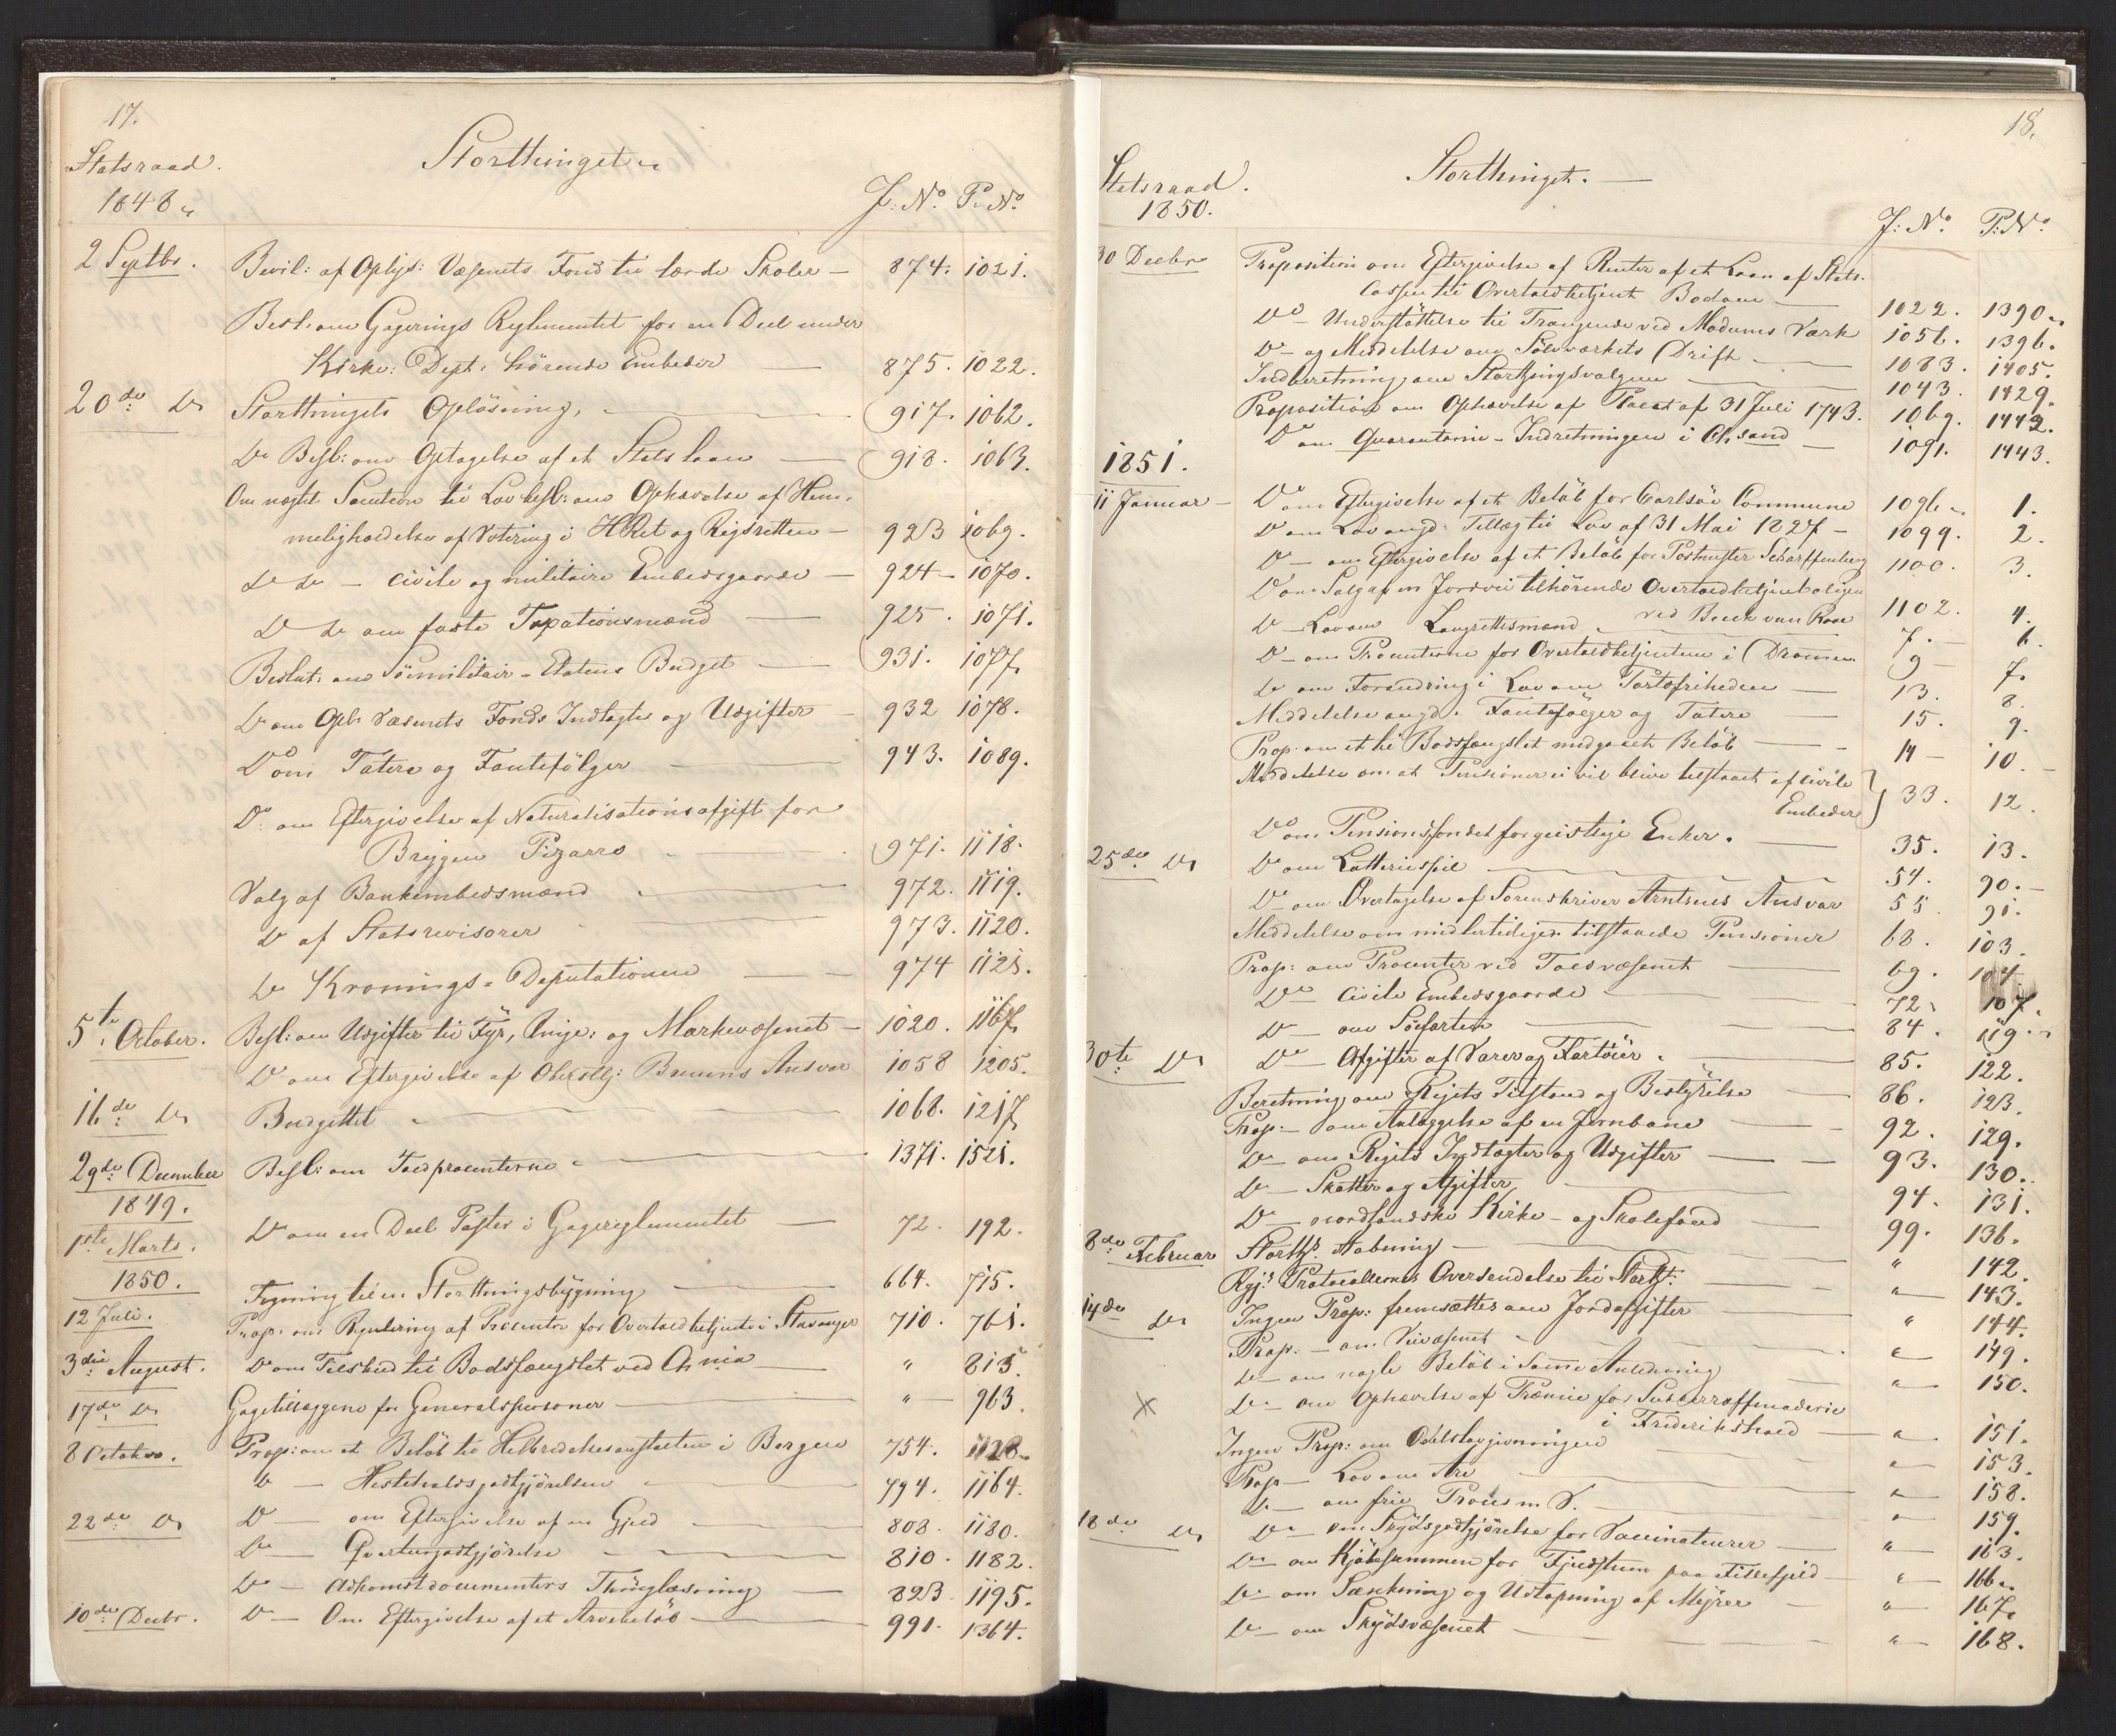 17.
Statsraad.
Storthinget
1848
J: No. P: No.
2 Septbr. Bevil: af Oplys: Væsenets Fond til lærde Skoler — 874. 1021.
Besl: om Gagerings Reglementet for en Deel under
Kirke: Dept. hörende Embeder — 875. 1022.
20de Do Storthingets Oplösning. — 917. 1062.
Do Besl: om Optagelse af et Statslaan — 918. 1063.
Om nægtet Sanction til Lovbesl: om Ophævelse af Hem-
meligholdelse af Votering i HRet og Rigsretten — 923 1069.
Do Do — civile og militaire Embedsgaarde — 924 — 1070.
Do Do om faste Taxationsmænd — 925. 1071.
Beslut: om Sömilitair-Etatens Budget — 931. 1077.
Do om Opl: Væsenets Fonds Indtægter og Udgifter — 932 1078.
Do om Tatere og Fantefölger — 943. 1089.
Do om Eftergivelse af Naturalisationsafgift for
Briggen Pizarro — 971. 1118.
Valg af Bankembedsmænd — 972. 1119.
Do af Statsrevisorer — 973. 1120.
Do Kronings-Deputationen — 974 1121.
5te October. Besl: om Udgifter til Fyr, og Mærkevæsenet — 1020. 1167.
Do om Eftergivelse af Ansvar 1058 1205.
16de Do Budgettet — 1068. 1217.
29de December Besl: om Toldprocenterne — 1371. 1521.
1849.
1ste Marts. Do om en Deel Poster i Gagereglementet — 72. 192.
1850.
Tegning til en Storthingsbygning — 664. 715.
12 Juli. Prop: om Regulering af Procenter for Overtoldbetjente i Stavanger 710. 761.
3die August. Do om Tilskud til Bodsfængslet ved Chnia — " 813.
17de Do Gagetillæggene for Generalspersoner — " — 963.
8 October. Prop: om et Belöb til Helbredelsesanstalten i Bergen 754. 1128.
Do — Hesteholdsgodtgjörelsen — 794. 1164.
22de Do Do — om Eftergivelse af en Gjeld — 808. 1180.
Do — Qvarteergodtgjörelse — 810. 1182.
Do — Adkomstdocumenters Thinglæsning — 823. 1195.
10de Decbr. Do — Om Eftergivelse af et Arvebelöb — 991. 1364.
18.
Statsraad.
Storthinget. —
1850.
J: No. P: No.
30 Decbr Proposition om Eftergivelse af Renter af et Laan af Stats-
cassen til Overtoldbetjent Bodom — 1022. 1390.
Do — Understöttelse til Trængende ved Modums Værk 1056. 1396.
Do — og Meddelelse om Sölvværkets Drift — 1083. 1405.
Indberetning om Storthingsvalgene — 1043. 1429.
Proposition om Ophævelse af Placat af 31 Juli 1743. 1069. 1442.
Do om Quarantaine-Indretningen i Chsand — 1091. 1443.
1851.
11 Januar — Do om Eftergivelse af et Belöb for Carlsöe Commune 1096. 1.
Do om Lov angd: Tillæg til Lov af 31 Mai 1827 — 1099. 2.
Do — om Eftergivelse af et Belöb for Postmester Scharffenberg 1100. 3.
Do om Salg af en Jordvei tilhörende Overtoldbetjentboligen
ved 1102. 4.
Do — Lov om Laugrettesmænd — 7. — 6.
Do — om Procenterne for Overtoldbetjentene i Drammen 9 — 7.
Do om Forandring i Lov om Portofriheden — 13. 8.
Meddelelse angd. Fantefölger og Tatere — 15. 9.
Prop: om et til Bodsfængslet medgaaet Belöb — 14 — 10.
Meddelelse om at Pensioner ei vil blive tilstaaet af civile
Embeder } 33. 12.
Do om Pensionsfondet for geistlige Enker. — 35. 13.
25de Do Do om Lotteriespil — 54. 90. —
Do — om Overtagelse af Sorenskriver Arntsens Ansvar 55 91.
Meddelelse om midlertidigen tilstaaede Pensioner 68. 103.
Prop: om Procenter ved Toldvæsenet — 69. 104.
Do — civile Embedsgaarde — 72. 107.
Do — om Söefarten — 84. 119.
30te Do Do — Afgifter af Varer og Fartöier. — 85. 122.
Beretning om Rigets Tilstand og Bestyrelse — 86. 123.
Prop: — om Anlæggelse af en Jernbane — 92. 129.
Do — om Rigets Indtægter og Udgifter — 93. 130.
Do — Skatter og Afgifter — 94. 131.
Do — nordlandske Kirke- og Skolefond — 99. 136.
8de Februar Storths. Aabning — " 142.
Regjs Protocollernes Oversendelse til Storth. — " 143.
14de Do Ingen Prop: fremsættes om Jordafgifter — " 144.
Prop. — om Veivæsenet — " 149.
Do — om nogle Belöb i Samme Anledning — " 150.
X Do — om Ophævelse af Præmie for Sukkerraffinaderie
i Frederikshald — " 151.
Ingen Prop: om Odelslovgivningen — " 153.
Prop — Lov om Arv — " 158.
Do — om frie Proces m. V. — " 159.
18de Do Do — om Skydsgodtgjörelse for Vaccinateurer — " 163.
Do — om Kjöbesummen for paa Fillefjeld — " 166.
Do — om Sænkning og Udtapning af Myrer — " 167.
Do — om Skydsvæsenet — " 168.